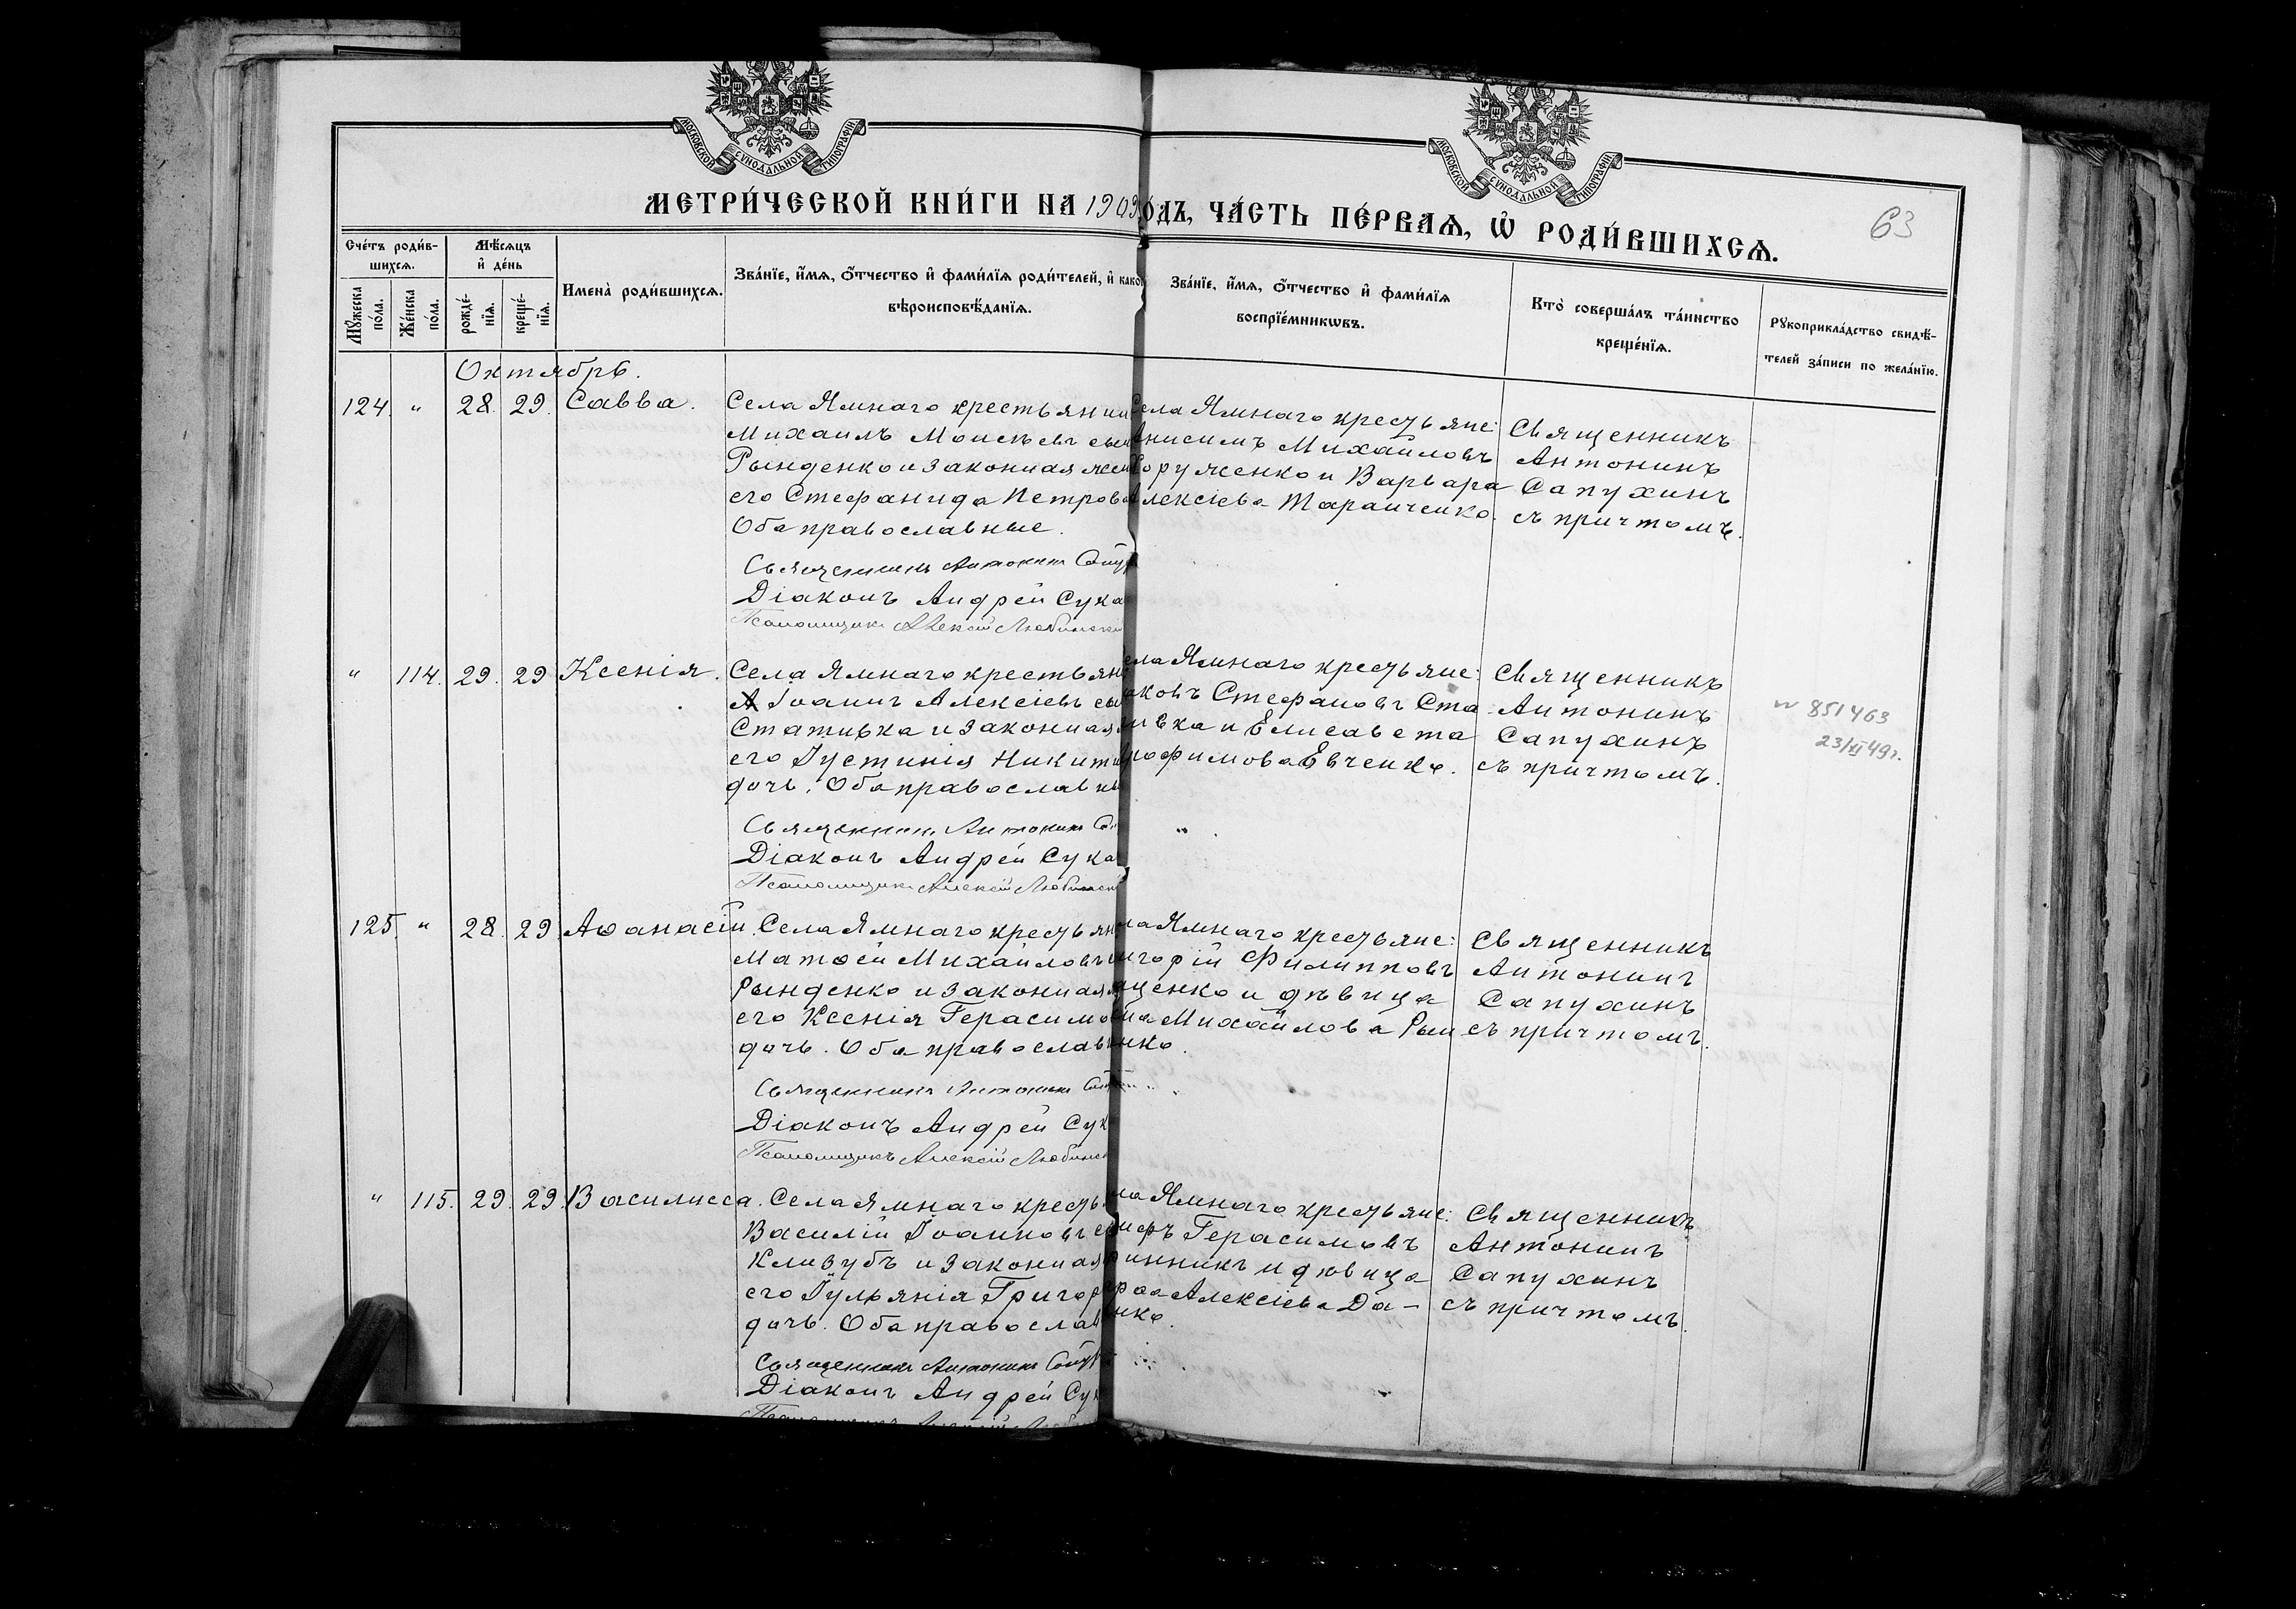 МОСКОВСКОЙ СѴНОДАЛЬНОЙ ТИПОГРАФІИ
МОСКОВСКОЙ СѴНОДАЛЬНОЙ ТИПОГРАФІИ
МЕТРИ́ЧЕСКОЙ КНИ́ГИ НА 1909 ОДЪ, ЧА́СТЬ ПЕ́РВАѦ, Ѡ҆ РОДИ́ВШИХСѦ.
63
Сче́тъ роди́в-
шихсѧ.
Мꙋ́жеска по́ла.
Же́нска по́ла.
Мѣ́сѧцъ
и҆ де́нь
рожде́-
нїѧ.
креще́-
нїѧ.
Имена̀ роди́вшихсѧ.
Зва́нїе, и҆́мѧ, ѻ҆́тчество и҆ фами́лїѧ роди́телей, и҆ како
вѣроисповѣ́данїѧ.
Зва́нїе, и҆́мѧ, ѻ҆́тчество и҆ фами́лїѧ
воспрїе́мникѡвъ.
Кто̀ соверша́лъ та́инство
креще́нїѧ.
Рꙋкоприкла́дство свидѣ́-
телей за́писи по жела́нїю.
Октябрь.
124. " 28. 29. Савва.
Села Ямнаго крестьянин
Михаилъ Моисѣевъ сын
Рынденко и законная жен
его Стефанида Петрова
Оба православные.
Священникъ Антонинъ Сапух
Діаконъ Андрей Сука
Псаломщикъ Алексій Любински
Села Ямнаго крестьяне:
Анисимъ Михайловъ
Хоруженко и Варвара
Алексіева Таранченко.
Священникъ
Антонинъ
Сапухинъ
съ причтомъ.
" 114. 29. 29 Ксенія.
Села Ямнаго крестьяни
Іоаннъ Алексіевъ сын
Стативка и законная
его Іустинія Никити
дочь. Оба православны
Священникъ Антонинъ Са
Діаконъ Андрей Сука
Псаломщикъ Алексій Любински
ела Ямнаго крестьяне:
аковъ Стефановъ Ста-
ивка и Елисавета
рофимова Евченко.
Священникъ
Антонинъ
Сапухинъ
съ причтомъ.
№ 851463
23/XI 49г.
125. " 28. 29. Аѳанасій.
Села Ямнаго крестьян
Матѳей Михайловъ
Рынденко и законная
его Ксенія Герасимо
дочь. Оба православн
Священникъ Антонинъ Сап
Діаконъ Андрей Сук
Псаломщикъ Алексій Любинск
ла Ямнаго крестьяне:
игорій Филипповъ
щенко и дѣвица
на Михайлова Рын
нко.
Священникъ
Антонинъ
Сапухинъ
съ причтомъ.
" 115. 29. 29. Василисса.
Села Ямнаго кресть
Василій Іоанновъ с
Кливубъ и законная
его Іульянія Григор
дочь. Оба православ
Священникъ Антонинъ Сапух
Діаконъ Андрей Сук
ла Ямнаго крестьяне:
ифъ Герасимовъ
инникъ и дѣвица
рѳа Алексіева Да-
нко.
Священникъ
Антонинъ
Сапухинъ
съ причтомъ.